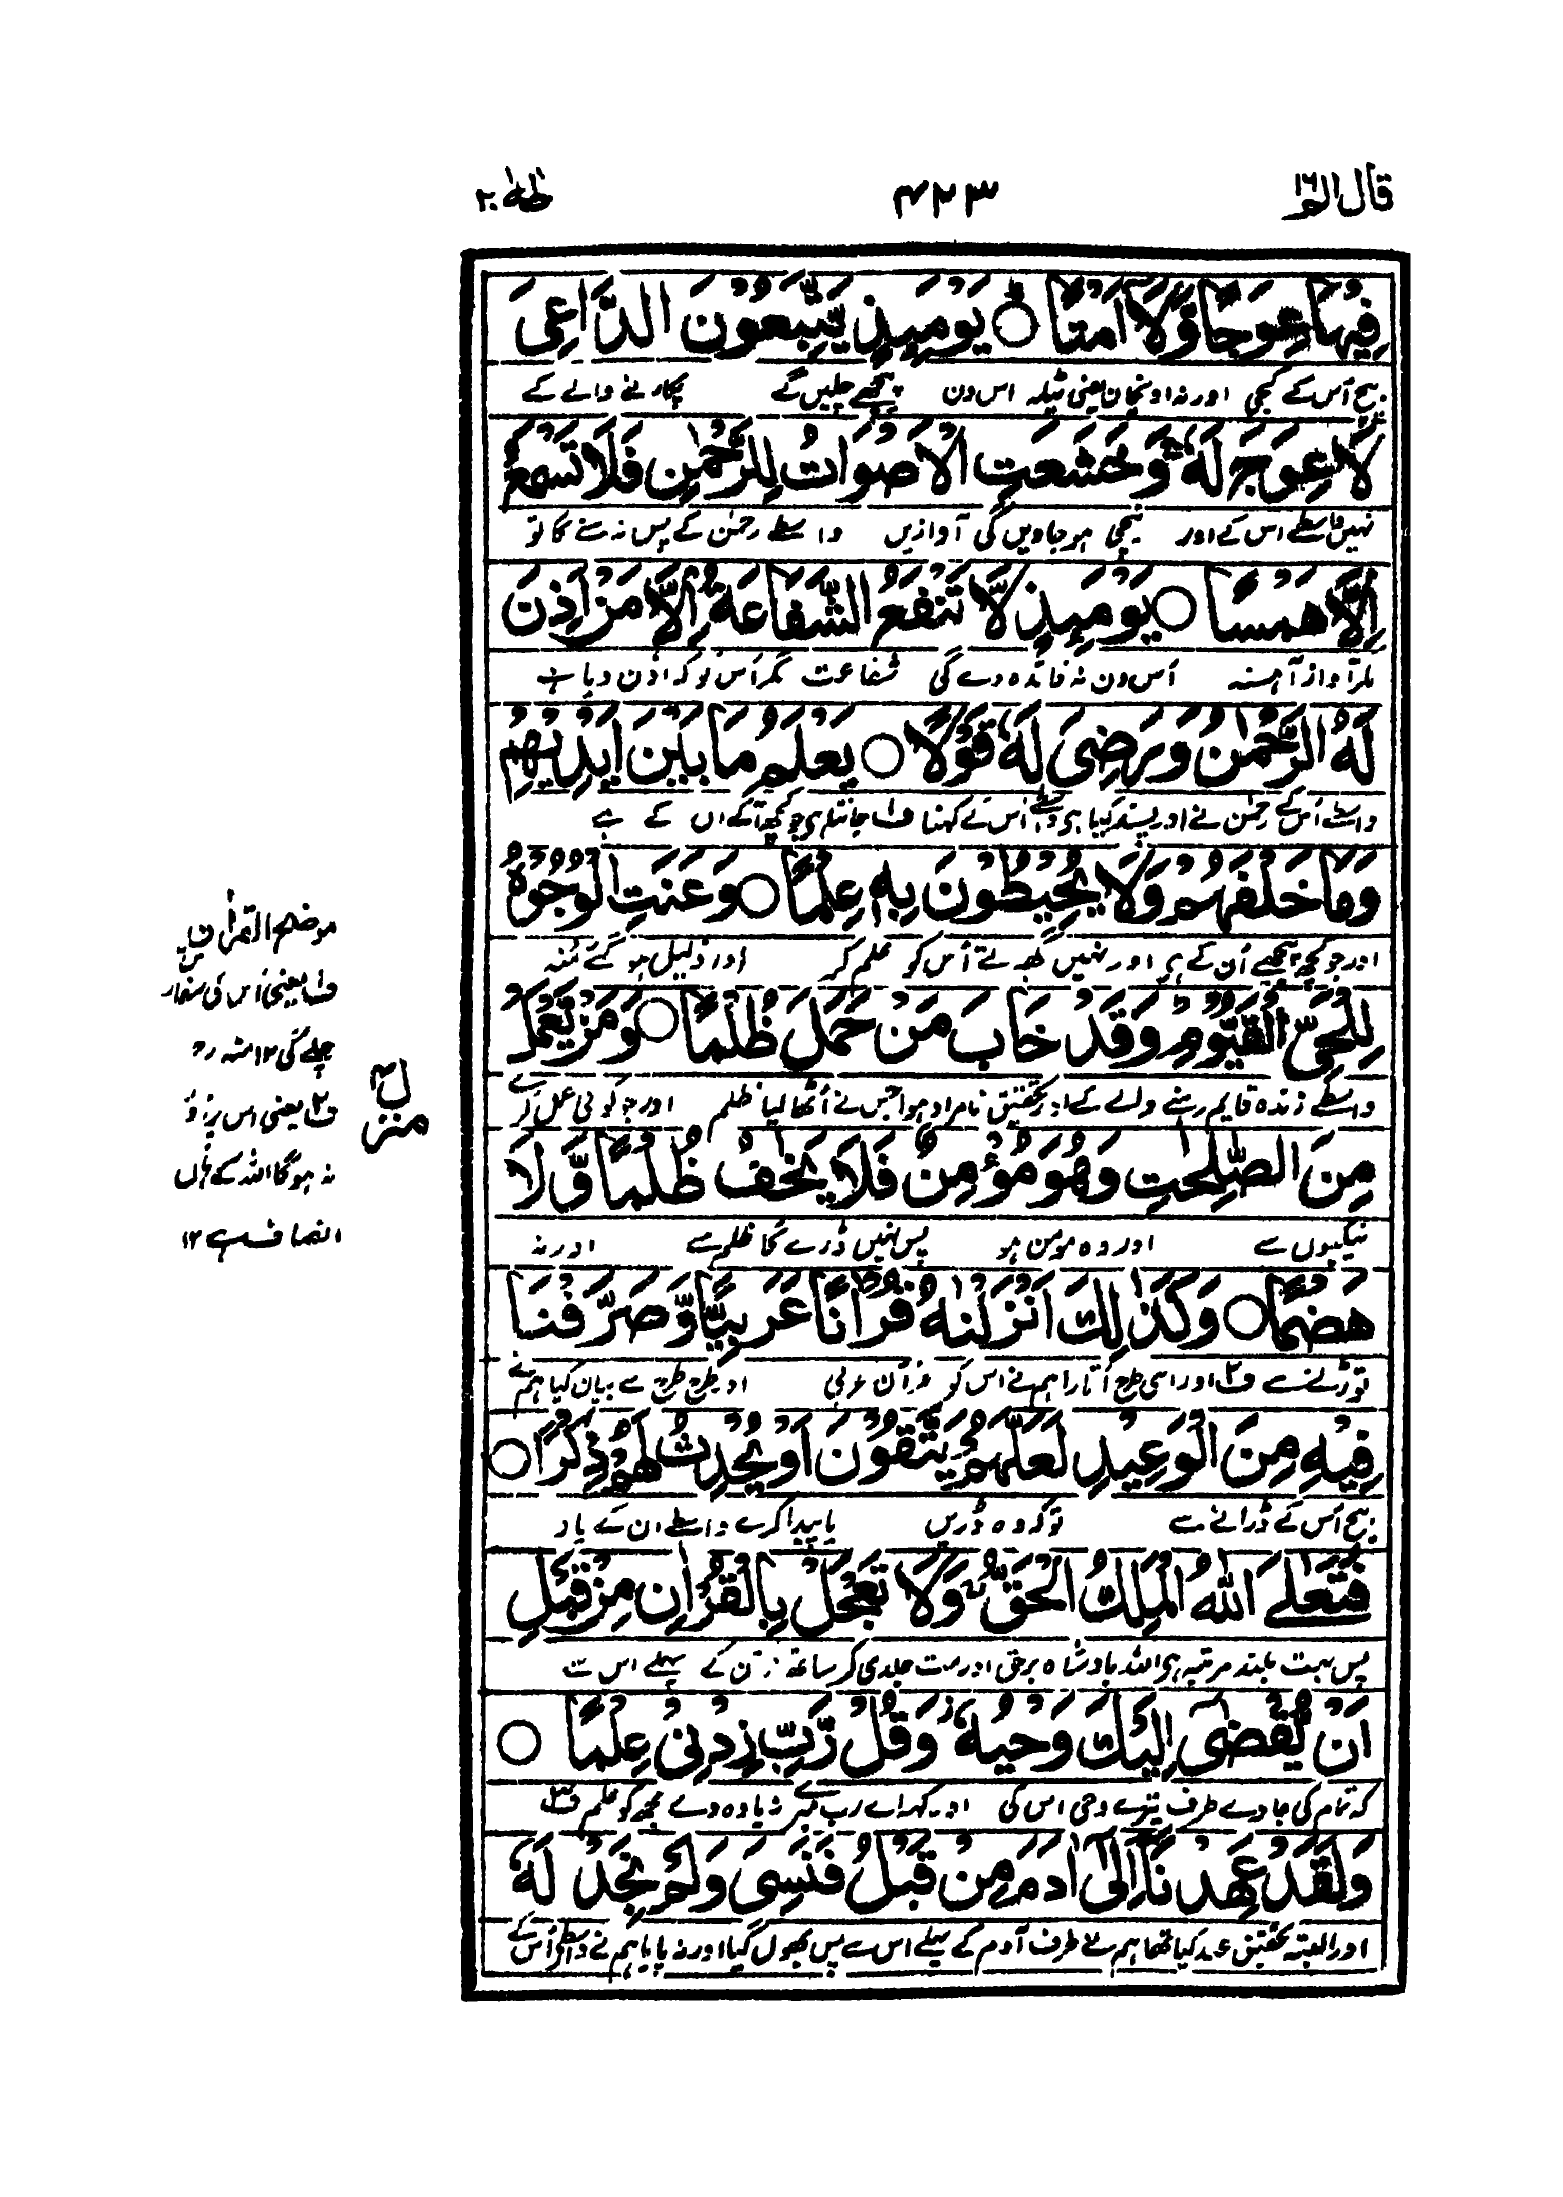 قال الم ١٦ ۴۲۳ طٰهٰ ٢٠
فِيْهَا عِوَجًا وَّلَآ اَمْتًا ○ يَوْمَئِذٍ يَّتَّبِعُوْنَ الدَّاعِيَ
بیچ اُس کے کجی اور نہ اونچان یعنی ٹیلہ اس دن پیچھے چلیں گے پکارنے والے کے
لَا عِوَجَ لَهٗ ۚ وَخَشَعَتِ الْاَصْوَاتُ لِلرَّحْمٰنِ فَلَا تَسْمَعُ
نہیں واسطے اس کے اور نیچی ہو جاویں گی آوازیں واسطے رحمٰن کے پس نہ سنے گا تو
اِلَّا هَمْسًا ○ يَوْمَئِذٍ لَّا تَنْفَعُ الشَّفَاعَةُ اِلَّا مَنْ اَذِنَ
مگر آواز آہستہ اُس دن نہ فائدہ دے گی شفاعت مگر اُس کو کہ اذن دیا ہے
لَهُ الرَّحْمٰنُ وَرَضِيَ لَهٗ قَوْلًا ○ يَعْلَمُ مَا بَيْنَ اَيْدِيْهِمْ
واسطے اُس کے رحمٰن نے اور پسند کیا ہی واسطے اُس کے کہنا ف۱ جانتا ہی جو کچھ آگے اں کے ہے
وَمَا خَلْفَهُمْ وَلَا يُحِيْطُوْنَ بِهٖ عِلْمًا ○ وَعَنَتِ الْوُجُوْهُ
اور جو کچھ پیچھے اُن کے ہی اور نہیں گھیرتے اُس کو علم کر اور ذلیل ہو گئے مُنہ
لِلْحَيِّ الْقَيُّوْمِ ۭ وَقَدْ خَابَ مَنْ حَمَلَ ظُلْمًا ○ وَمَنْ يَّعْمَلْ
واسطے زندہ قایم رہنے والے کے اور تحقیق نامراد ہوا جس نے اُٹھا لیا ظلم اور جو کوئی عمل کرے
مِنَ الصّٰلِحٰتِ وَهُوَ مُؤْمِنٌ فَلَا يَخٰفُ ظُلْمًا وَّلَا
نیکیوں سے اور وہ مومن ہو پس نہیں ڈرے گا ظلم سے اور نہ
هَضْمًا ○ وَكَذٰلِكَ اَنْزَلْنٰهُ قُرْاٰنًا عَرَبِيًّا وَّصَرَّفْنَا
توڑنے سے ف۲ اور اسی طرح اُتارا ہم نے اس کو قرآن عربی اور طرح طرح سے بیان کیا ہم نے
فِيْهِ مِنَ الْوَعِيْدِ لَعَلَّهُمْ يَتَّقُوْنَ اَوْ يُحْدِثُ لَهُمْ ذِكْرًا ○
بیچ اُس کے ڈرانے سے توکہ وہ ڈریں یا پیدا کرے واسطے ان کے یاد
فَتَعٰلَى اللّٰهُ الْمَلِكُ الْحَقُّ ۚ وَلَا تَعْجَلْ بِالْقُرْاٰنِ مِنْ قَبْلِ
پس بہت بلند مرتبہ ہی اللہ بادشاہ برحق اور مت جلدی کر ساتھ قرآن کے پہلے اس سے
اَنْ يُّقْضٰٓى اِلَيْكَ وَحْيُهٗ ۡ وَقُلْ رَّبِّ زِدْنِيْ عِلْمًا ○
کہ تمام کی جاوے طرف تیرے وحی اس کی اور کہہ اے رب میرے زیادہ دے مجھ کو علم ف۳
وَلَقَدْ عَهِدْنَآ اِلٰٓى اٰدَمَ مِنْ قَبْلُ فَنَسِيَ وَلَمْ نَجِدْ لَهٗ
اور البتہ تحقیق عہد کیا تھا ہم نے طرف آدم کے پہلے اس سے پس بھول گیا اور نہ پایا ہم نے واسطے اُس کے
موضح القرآن
ف۱ یعنی اُس کی سفارش
چلے گی ۱۲ منہ رح
ف۲ یعنی اس پر
نہ ہوگا اللہ کے ہاں
انصاف ہے ۱۲
منزل ۴